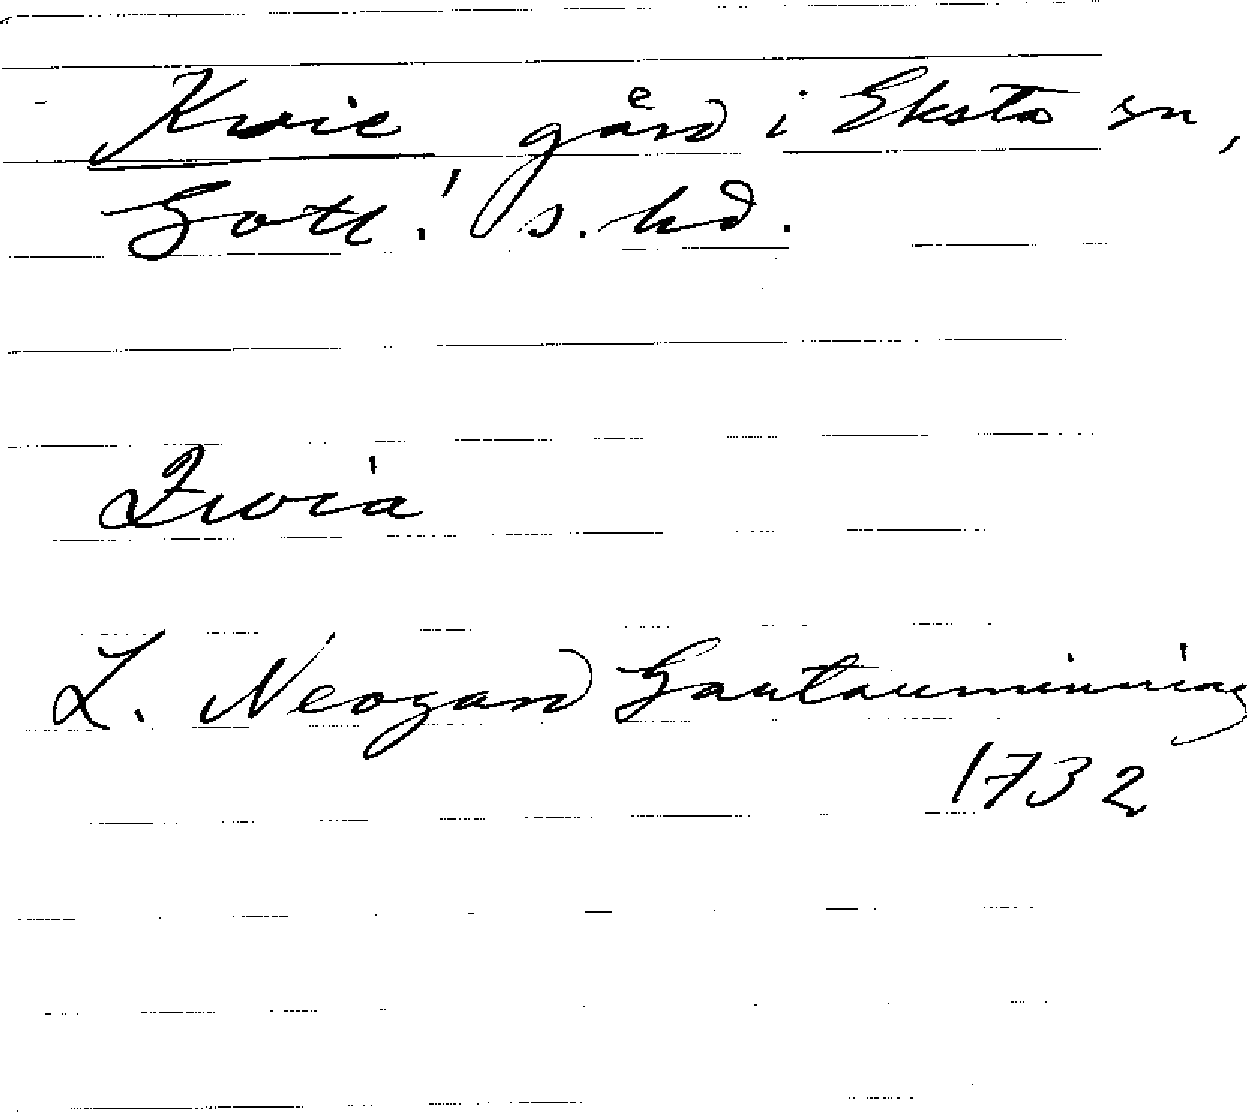 Kvie, gård i Eksta sn,
Gotl. s. hd.
Qvia
L. Neogard Gautauminning
1732